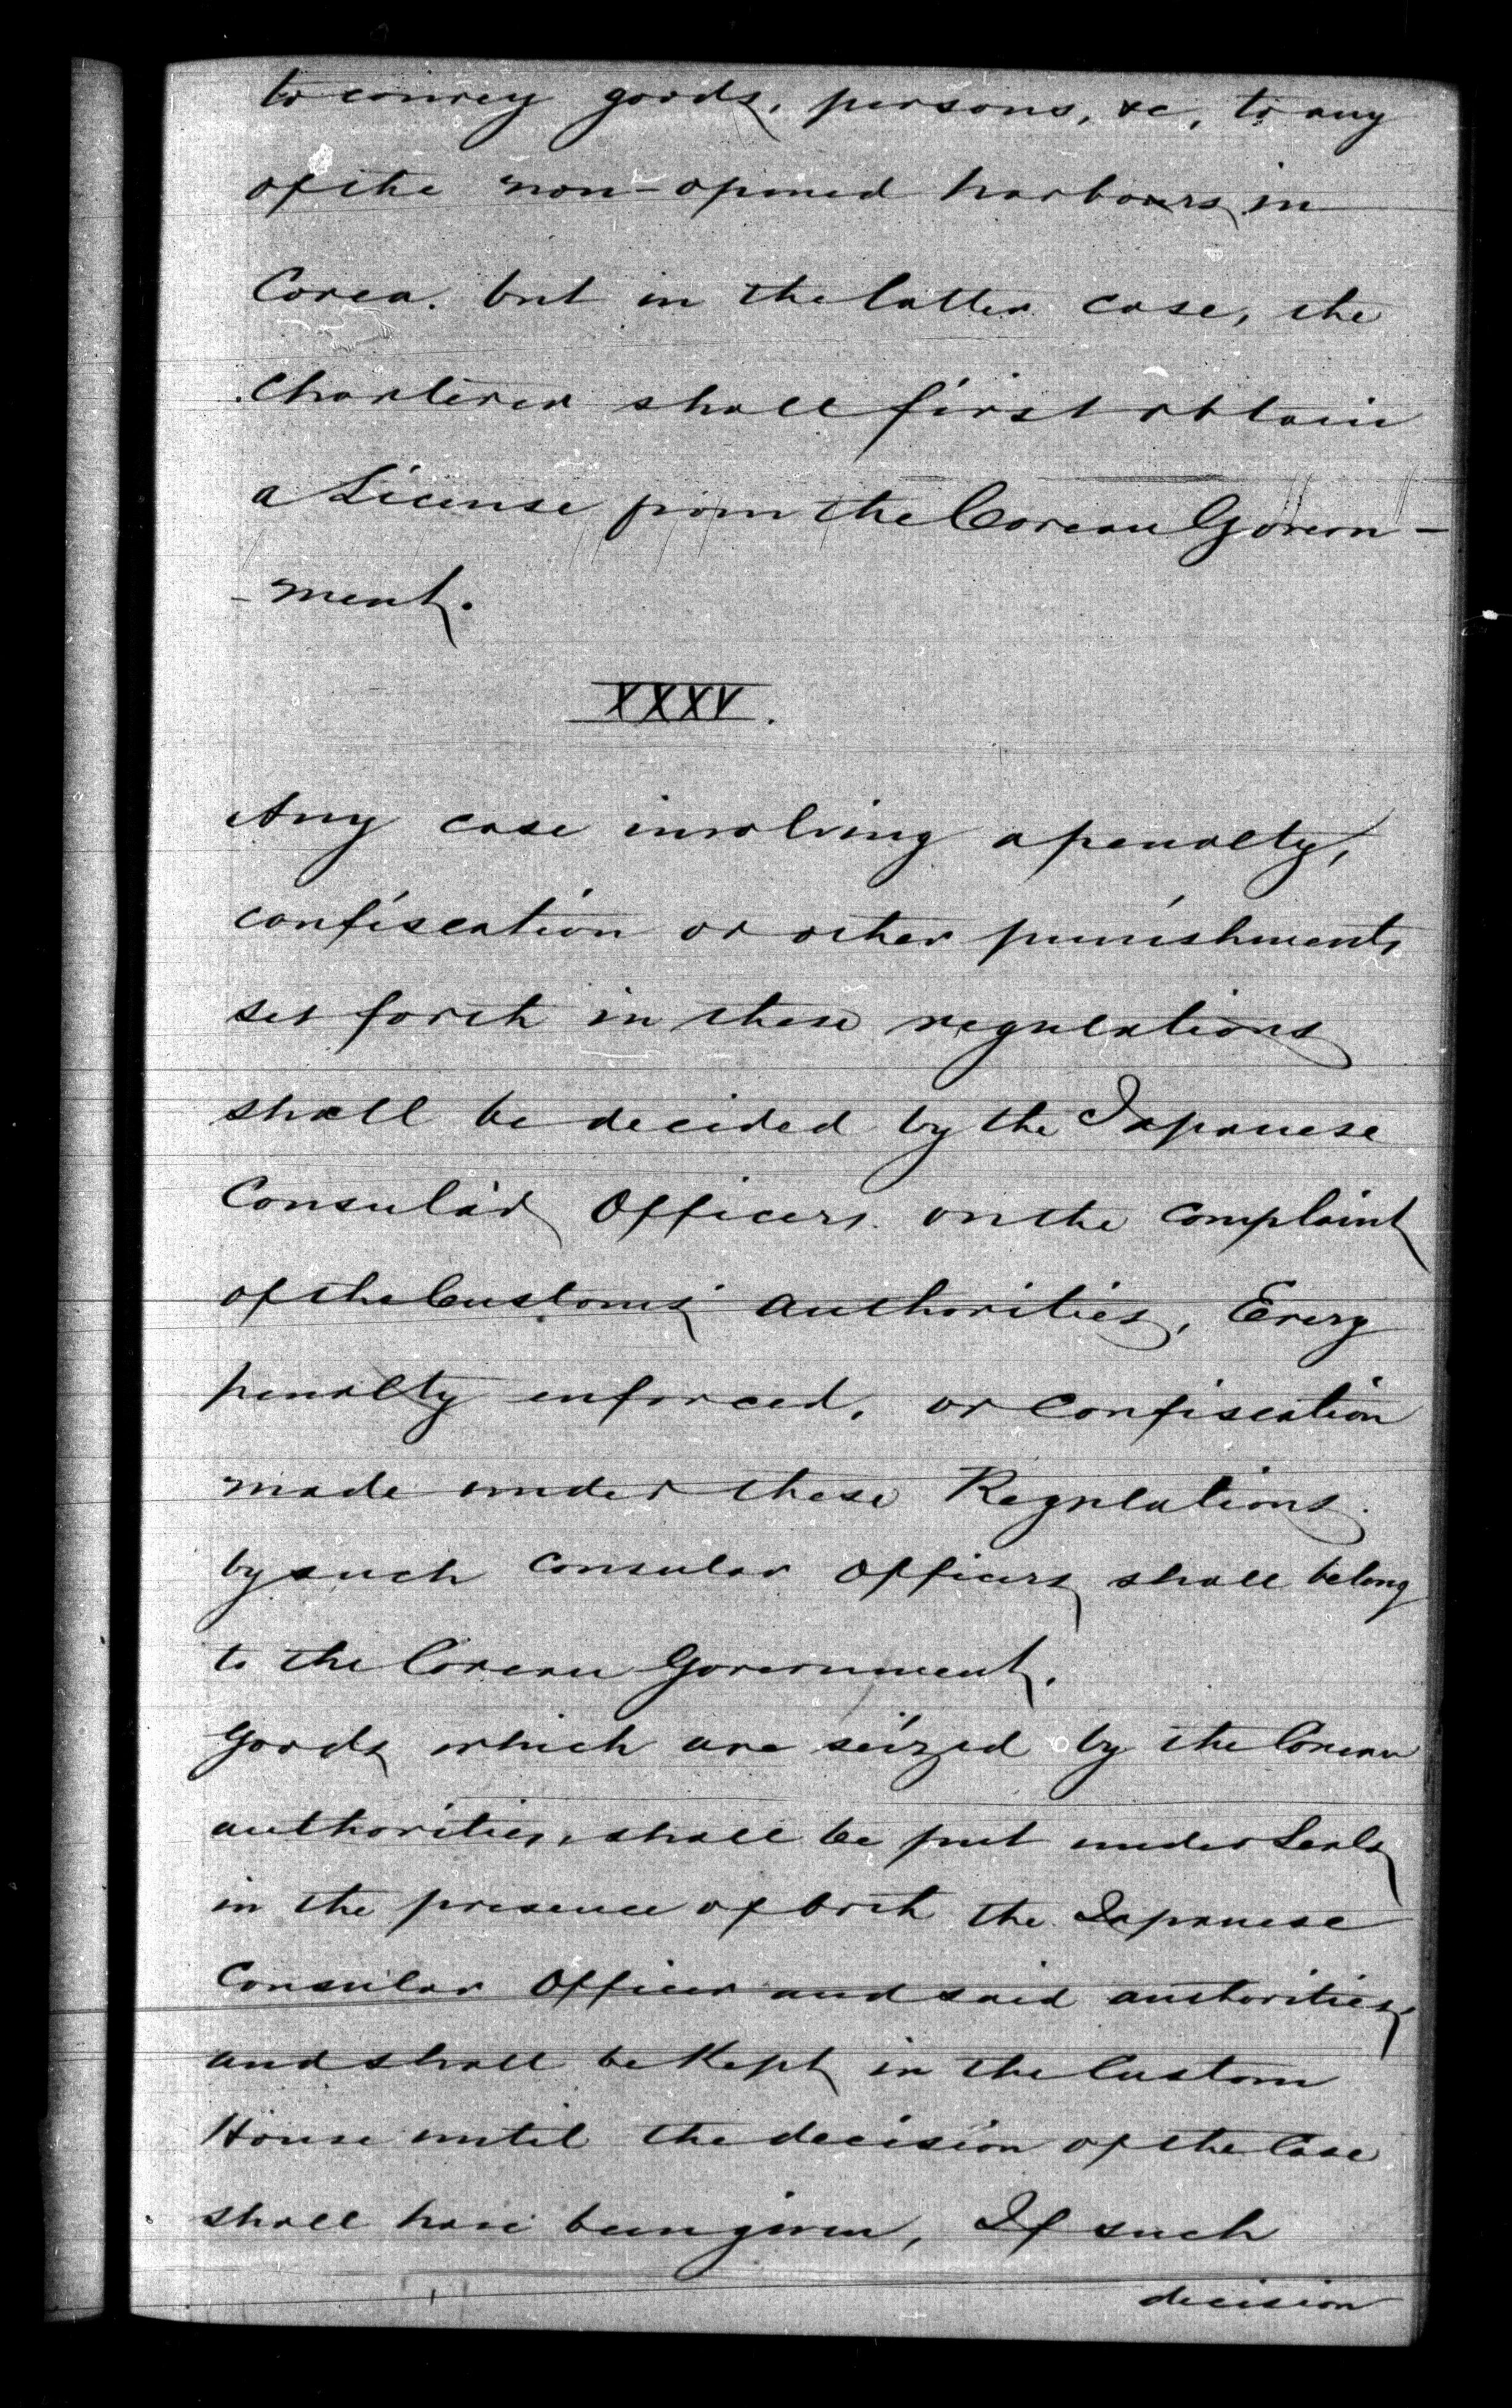 to convey goods, persons, &c, to any
of the non-opened harbours in
Corea. but in the latter case, the
Charterer shall first obtain
a License from the Corean Govern-
-ment.
XXXV.
Any case involving a penalty,
confiscation or other punishments
set forth in these regulations
shall be decided by the Japanese
Consular Officers on the complaint
of the Customs authorities, Every
penalty enforced, or Confiscation
made under these Regulations.
by such Consular Officers shall belong
to the Corean Government.
Goods which are seized by the Corean
authorities, shall be put under Seals
in the presence of both the Japanese
Consular Officer and said authorities,
and shall be Kept in the Custom
House until the decision of the Case
shall have been given, If such
decision